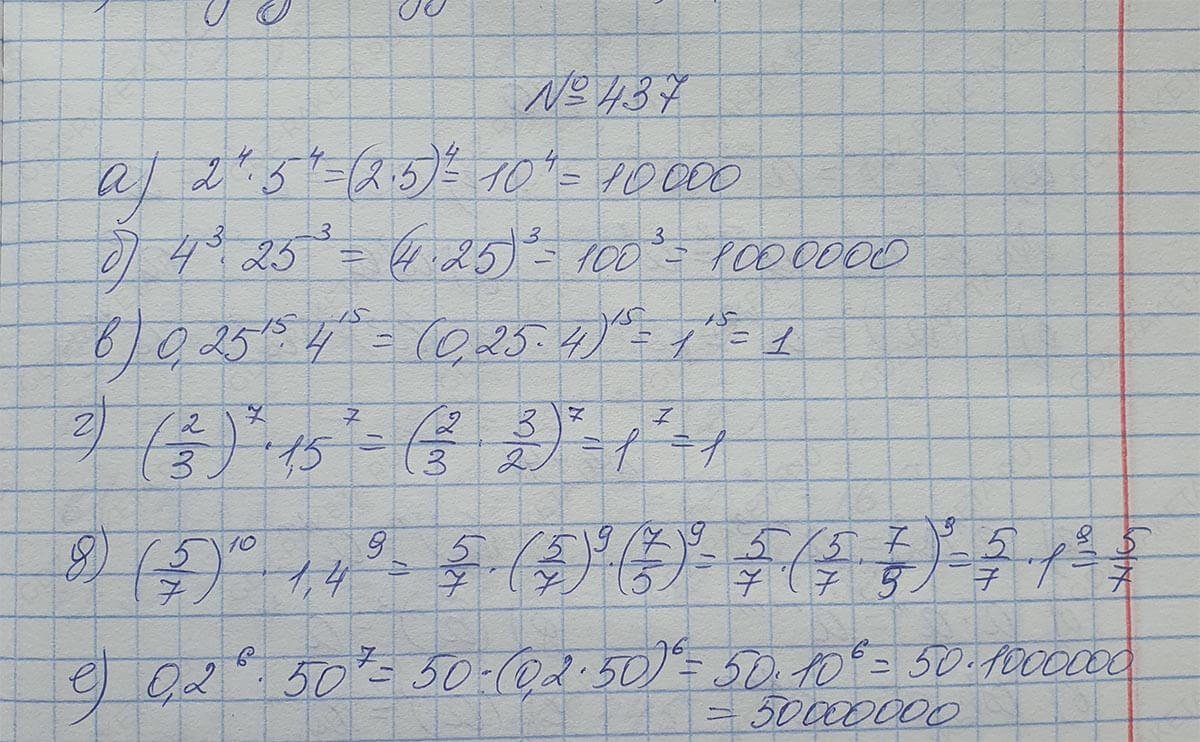 № 437
а) 2⁴ · 5⁴ = (2 · 5)⁴ = 10⁴ = 10000
б) 4³ · 25³ = (4 · 25)³ = 100³ = 1000000
в) 0,25¹⁵ · 4¹⁵ = (0,25 · 4)¹⁵ = 1¹⁵ = 1
г) (2/3)⁷ · 1,5⁷ = (2/3 · 3/2)⁷ = 1⁷ = 1
д) (5/7)¹⁰ · 1,4⁹ = 5/7 · (5/7)⁹ · (7/5)⁹ = 5/7 · (5/7 · 7/5)⁹ = 5/7 · 1⁹ = 5/7
е) 0,2⁶ · 50⁷ = 50 · (0,2 · 50)⁶ = 50 · 10⁶ = 50 · 1000000
= 50000000